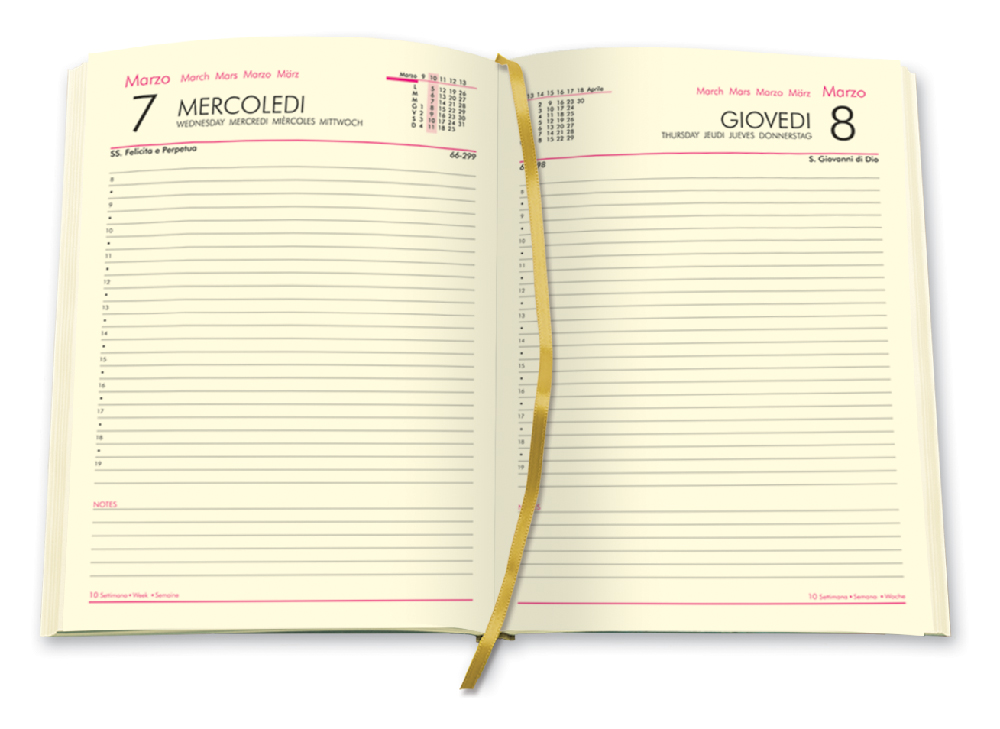 Marzo March Mars Marzo März
7 MERCOLEDI
WEDNESDAY MERCREDI MIÉRCOLES MITTWOCH
Marzo 9 10 11 12 13
L 5 12 19 26
M 6 13 20 27
M 7 14 21 28
G 1 8 15 22 29
V 2 9 16 23 30
S 3 10 17 24 31
D 4 11 18 25
SS. Felicita e Perpetua
66-299
8
9
10
11
12
13
14
15
16
17
18
19
NOTES
10 Settimana • Week • Semaine
13 14 15 16 17 18 Aprile
2 9 16 23 30
3 10 17 24
4 11 18 25
5 12 19 26
6 13 20 27
7 14 21 28
8 15 22 29
March Mars Marzo März Marzo
GIOVEDI 8
THURSDAY JEUDI JUEVES DONNERSTAG
S. Giovanni di Dio
8
9
10
11
12
13
14
15
16
17
18
19
10 Settimana • Semana • Woche